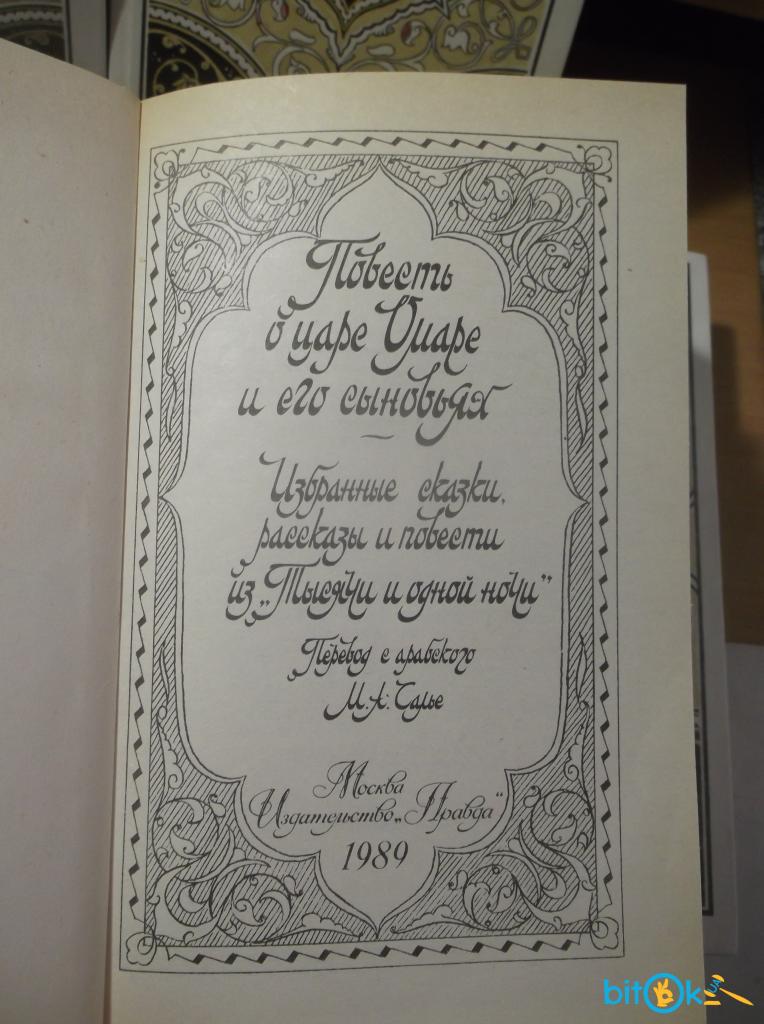 Повесть
о царе Омаре
и его сыновьях
Избранные сказки,
рассказы и повести
из „Тысячи и одной ночи“
Перевод с арабского
М. А. Салье
Москва
Издательство „Правда“
1989
bitOk UA